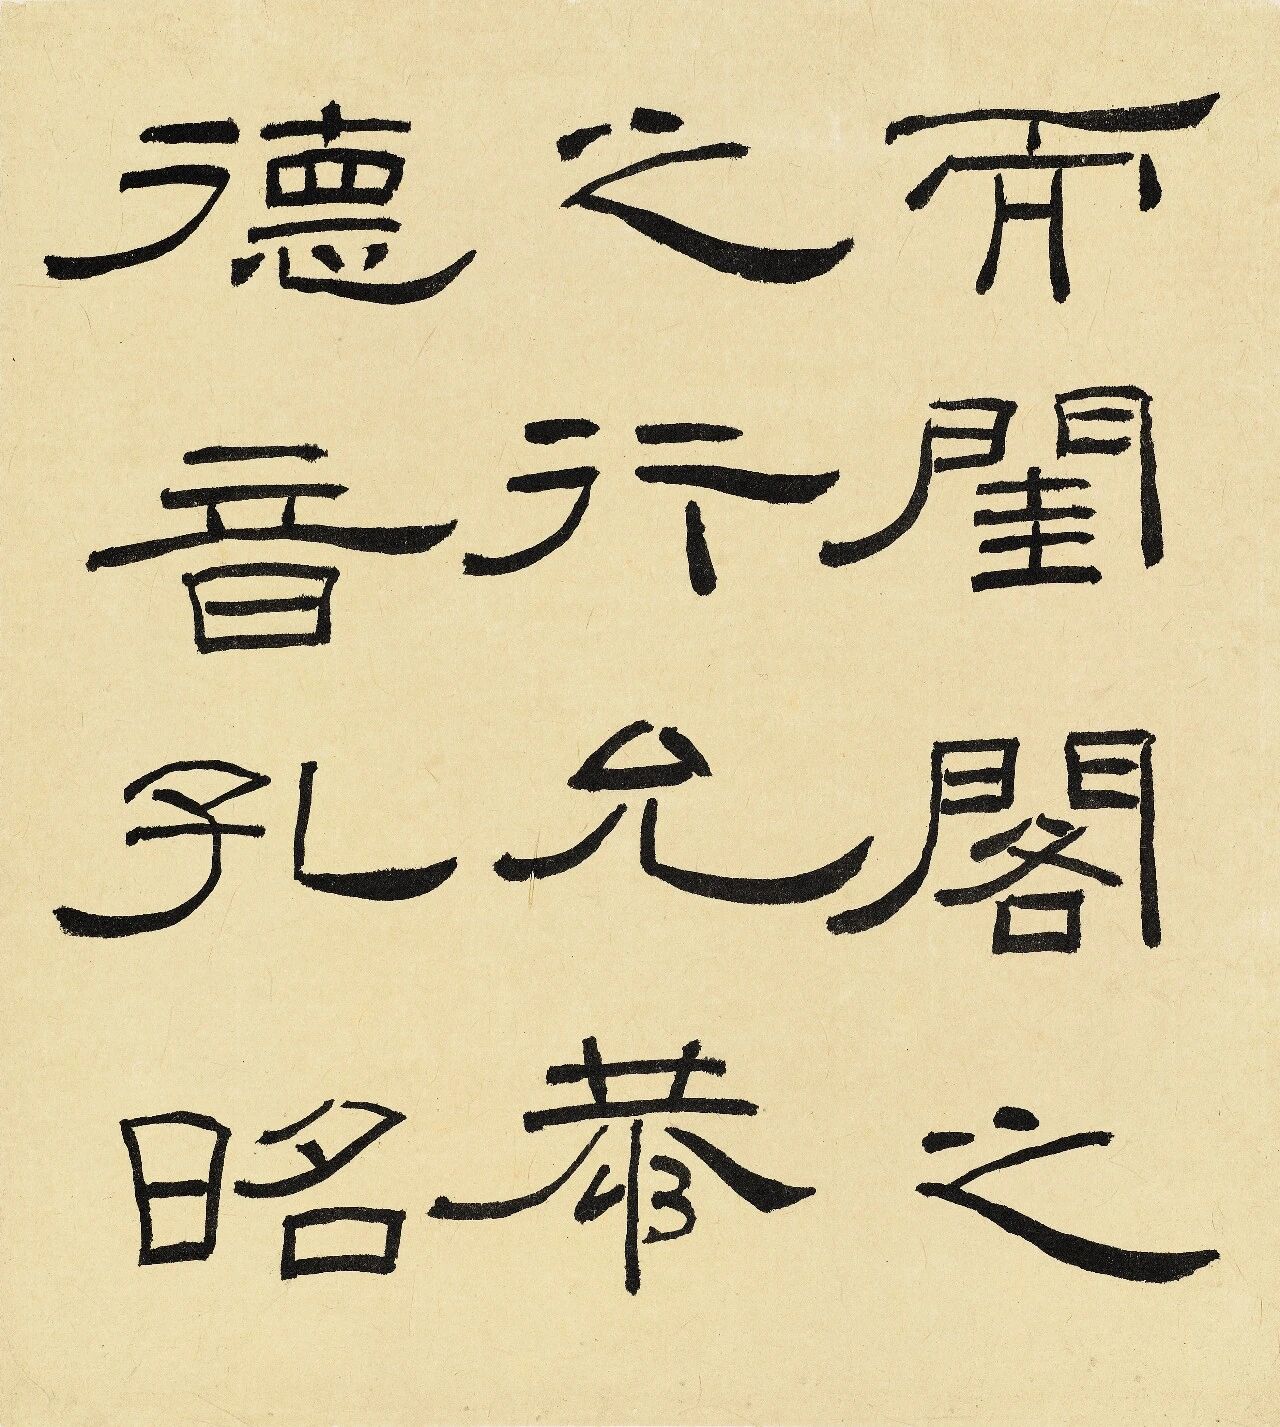 而閨閣之
行允恭
之
德音孔昭